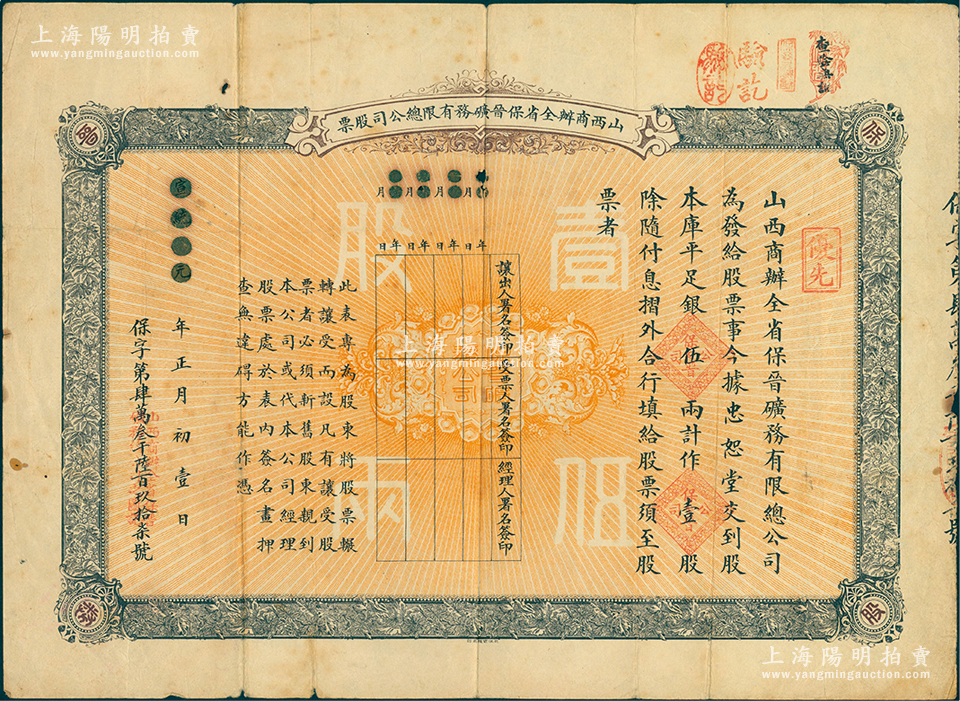 上海陽明拍賣
www.yangmingauction.com
查合再訖
驗訖
山西商辦全省保晉礦務有限總公司股票
保
晉
股
優先
山西商辦全省保晉礦務有限總公司
為發給股票事今據忠恕堂交到股
本庫平足銀伍兩計作壹股
除隨付息摺外合行填給股票須至股
票者
壹股
伍兩
年月日
年月日
年月日
年月日
讓出人署名簽印
受票人署名簽印
經理人署名簽印
此表專為股東將股票輾
轉讓受而設凡有讓受股
票者必須斬舊股東親到
本公司或代本公司經理
股票處於表內簽名畫押
查無違碍方能作憑
宣統元年正月初壹日
保字第肆萬叁千陸百玖拾柒號
上海陽明拍賣
www.yangmingauction.com
上海陽明拍賣
www.yangmingauction.com